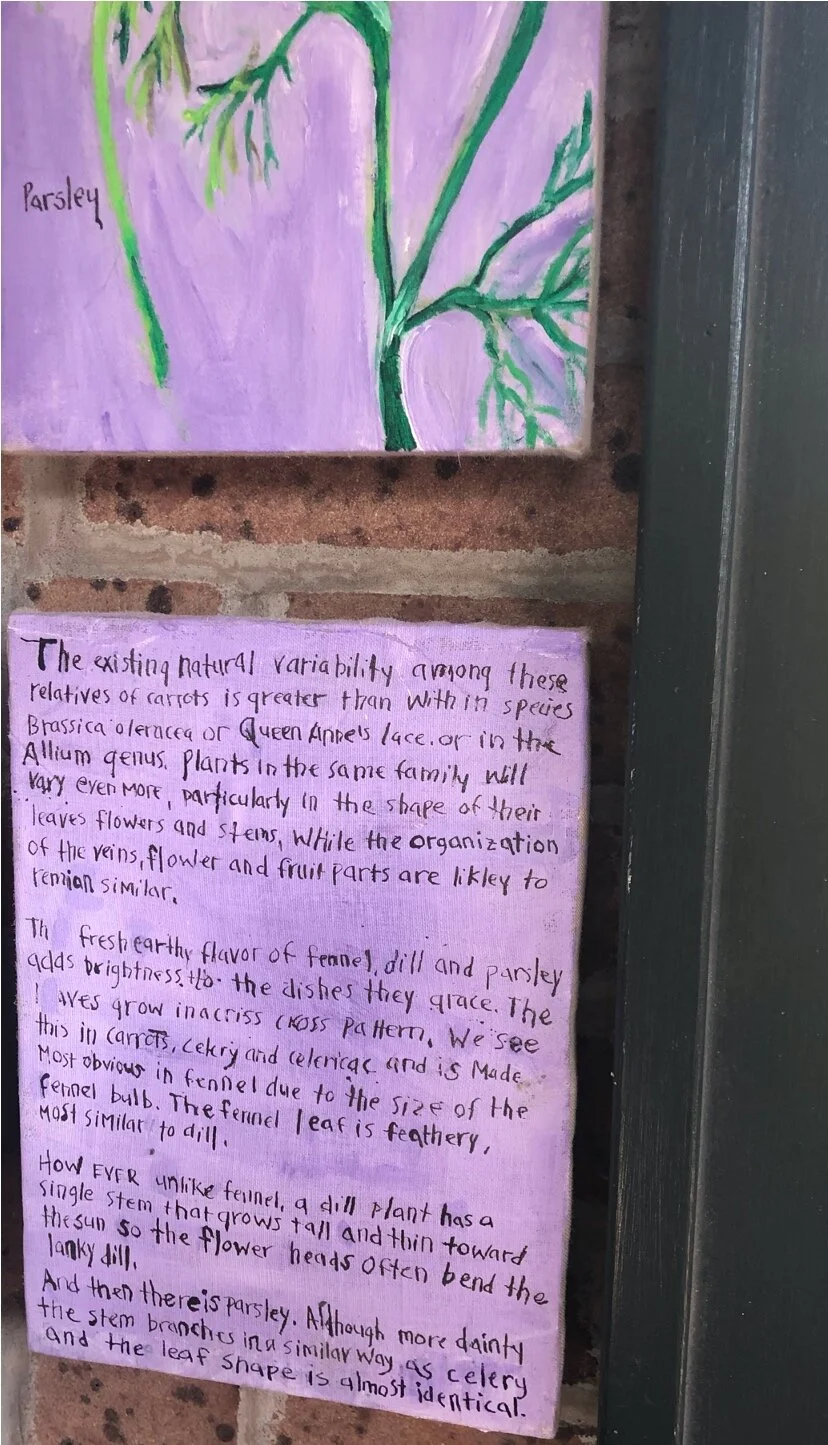 Parsley
The existing natural variability among these
relatives of carrots is greater than with in species
Brassica oleracea or Queen Anne's lace. or in the
Allium genus. Plants in the same family will
vary even more, particularly in the shape of their
leaves flowers and stems, while the organization
of the veins, flower and fruit parts are likley to
remian similar.
Th fresh earthy flavor of fennel, dill and parsley
adds brightness to the dishes they grace. The
l aves grow in a criss cross pattern. We see
this in carrots, celery and celeriac and is Made
Most obvious in fennel due to the size of the
fennel bulb. The fennel leaf is feathery,
most similar to dill.
How EVER unlike fennel, a dill plant has a
single stem that grows tall and thin toward
the sun so the flower heads often bend the
lanky dill.
And then there is parsley. Although more dainty
the stem branches in a similar way as celery
and the leaf shape is almost identical.